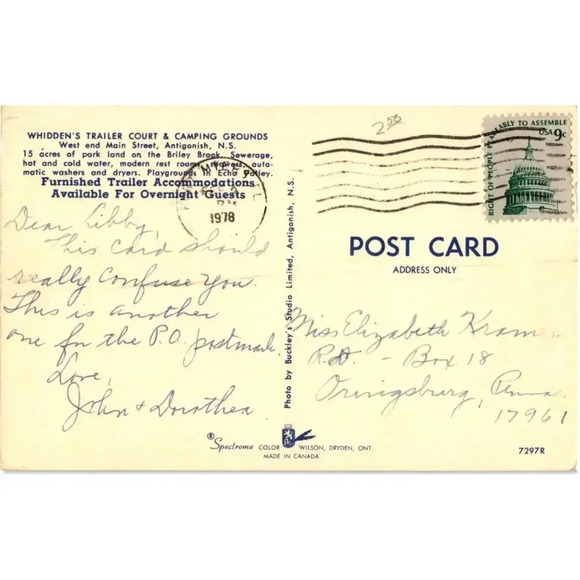 2.50
WHIDDEN'S TRAILER COURT & CAMPING GROUNDS
West end Main Street, Antigonish, N.S.
15 acres of park land on the Briley Brook. Sewerage,
hot and cold water, modern rest rooms, showers, auto-
matic washers and dryers. Playgrounds in Echo Valley.
Furnished Trailer Accommodations
Available For Overnight Guests
PM
1978
RIGHT OF PEOPLE PEACEABLY TO ASSEMBLE
USA 9c
Dear Libby,
This card should
really confuse you.
This is another
one for the P.O. postmark.
Love,
John & Dorothea
Photo by Buckley's Studio Limited, Antigonish, N.S.
POST CARD
ADDRESS ONLY
Miss Elizabeth Kramer
R.D. - Box 18
Orwigsburg, Penna.
17961
®Spectrome COLOR WILSON, DRYDEN, ONT.
MADE IN CANADA
7297R